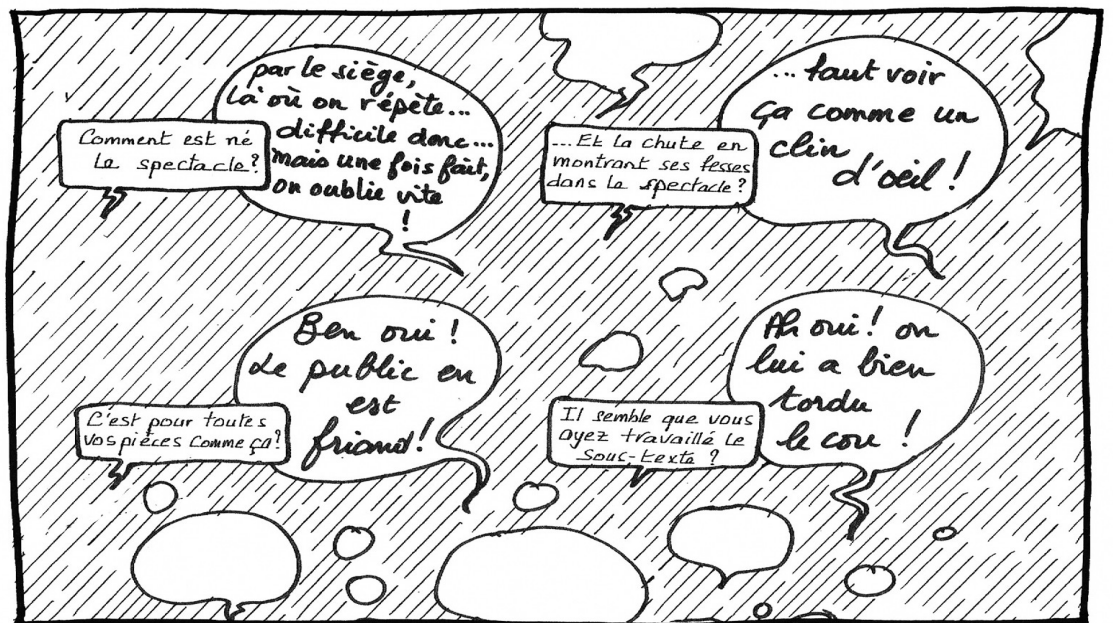 Comment est né
le spectacle?
par le siège,
là où on répète...
difficile donc...
mais une fois fait,
on oublie vite
!
...Et la chute en
montrant ses fesses
dans le spectacle?
... faut voir
ça comme un
clin
d'oeil!
C'est pour toutes
vos pièces comme ça?
Ben oui!
Le public en
est
friand!
Il semble que vous
ayez travaillé le
sous-texte ?
Ah oui! on
lui a bien
tordu
le cou!